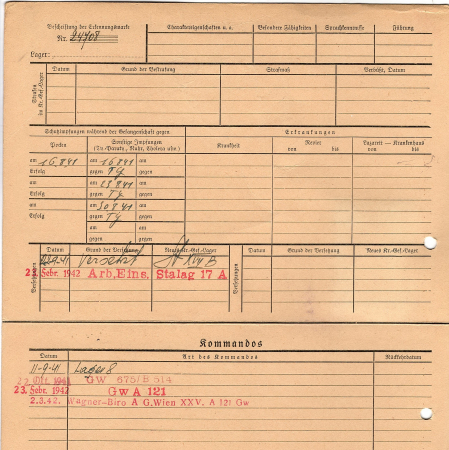 Beschriftung der Erkennungsmarke
Nr. 24708
Lager:
Charaktereigenschaften u. a.
Besondere Fähigkeiten
Sprachkenntnisse
Führung
Strafen im Kr.-Gef.-Lager
Datum
Grund der Bestrafung
Strafmaß
Verbüßt, Datum
Schutzimpfungen während der Gefangenschaft gegen
Erkrankungen
Pocken
Sonstige Impfungen
(Ty-Paraty., Ruhr, Cholera usw.)
Krankheit
Revier
von bis
Lazarett — Krankenhaus
von bis
am 16.8.41 am 16.8.41 am
Erfolg gegen Ty gegen
am am 23.8.41 am
Erfolg gegen Ty gegen
am am 30.8.41 am
Erfolg gegen Ty gegen
am am
gegen gegen
Versetzungen
Datum
Grund der Versetzung
Neues Kr.-Gef.-Lager
Versetzungen
Datum
Grund der Versetzung
Neues Kr.-Gef.-Lager
9.41 Versetzt St XVII B
23. Febr. 1942 Arb, Eins, Stalag 17 A
Kommandos
Datum
Art des Kommandos
Rückkehrdatum
11-9-41 Lager 8
Okt. 1941 GW 675/B 514
23. Febr. 1942 GwA 121
2.3.42. Wagner-Biro A G.Wien XXV. A 121.Gw